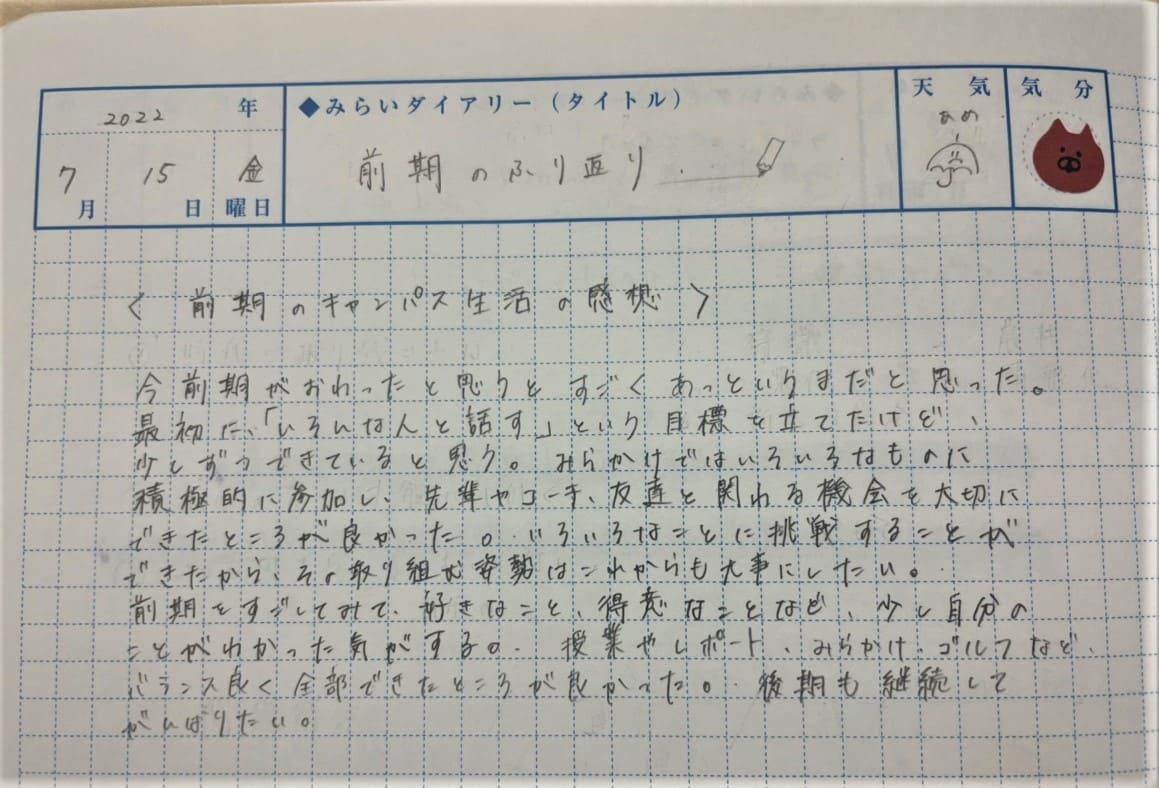 2022 年
7 月 15 日 金 曜日
◆みらいダイアリー（タイトル）
前期のふり返り
天気
あめ
気分
〈 前期のキャンパス生活の感想 〉
今前期がおわったと思うとすごくあっというまだと思った。
最初に、「いろんな人と話す」という目標を立てたけど、
少しずつできていると思う。みらかけではいろいろなものに
積極的に参加し、先輩やコーチ、友達と関わる機会を大切に
できたところが良かった。いろいろなことに挑戦することが
できたから、その取り組む姿勢はこれからも大事にしたい。
前期をすごしてみて、好きなこと、得意なことなど、少し自分の
ことがわかった気がする。授業やレポート、みらかけ、ゴルフなど、
バランス良く全部できたところが良かった。後期も継続して
がんばりたい。